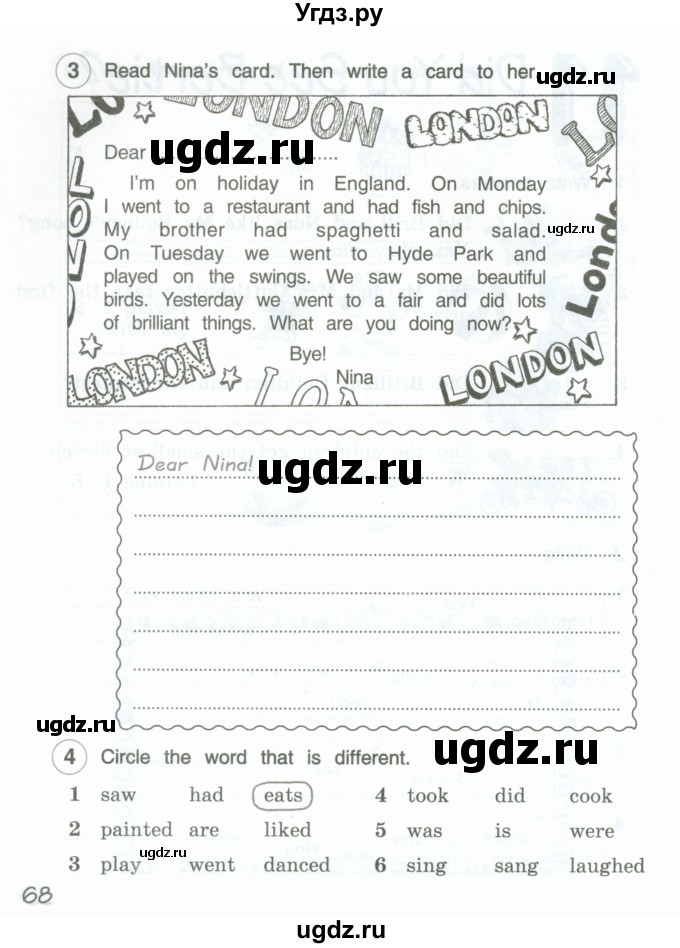 Угдз.ру
3 Read Nina's card. Then write a card to her.
ugdz.ru
LONDON LONDON LONDON
Dear ugdz.ru ..............
I'm on holiday in England. On Monday
I went to a restaurant and had fish and chips.
ugdz.ru
My brother had spaghetti and salad.
On Tuesday we went to Hyde Park and
played on the swings. We saw some beautiful
birds. Yesterday we went to a fair and did lots
of brilliant things. What are you doing now?
Bye!
Nina
LONDON LONDON
Dear Nina!
ugdz.ru
ugdz.ru
4 Circle the word that is different.
ugdz.ru
1 saw had eats 4 took did cook
2 painted are liked 5 was is were
ugdz.ru
3 play went danced 6 sing sang laughed
68
ugdz.ru